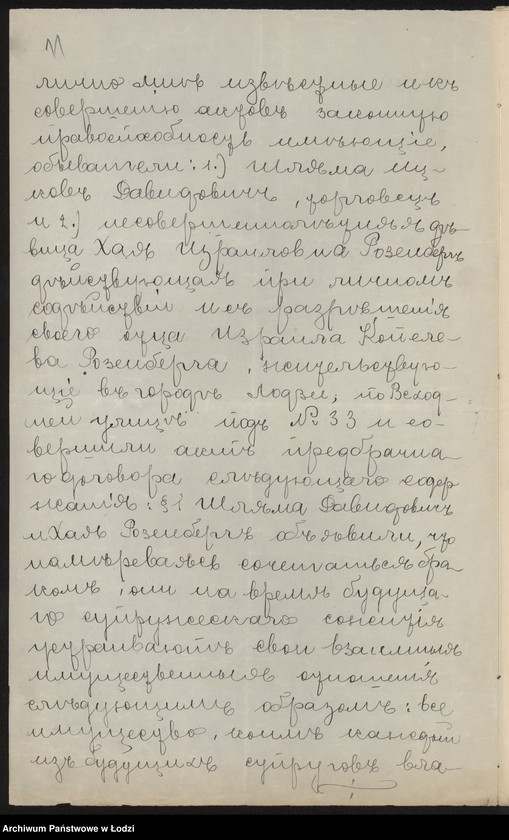 лично мнѣ извѣстные и къ
совершенію актовъ законную
правоспособность имѣющіе,
обыватели: 1.) Шляма Иц-
ковъ Давидовичъ, торговецъ
и 2.) несовершеннолѣтняя дѣ-
вица Хая Израилевна Розенбергъ
дѣйствующая при личномъ
содѣйствіи и съ разрѣшенія
своего отца Израила Копеле-
ва Розенберга, жительствую-
щіе въ городѣ Лодзи, по Всход-
ней улицѣ подъ № 33 и со-
вершили актъ предбрачна-
го договора слѣдующаго содер
жанія: §1 Шляма Давидовичъ
и Хая Розенбергъ объявили, что
намѣреваясь сочетаться бра-
комъ, они на время будуща-
го супружескаго сожитія
устраиваютъ свои взаимныя
имущественныя отношенія
слѣдующимъ образомъ: все
имущество, коимъ каждый
изъ будущихъ супруговъ вла-
Archiwum Państwowe w Łodzi